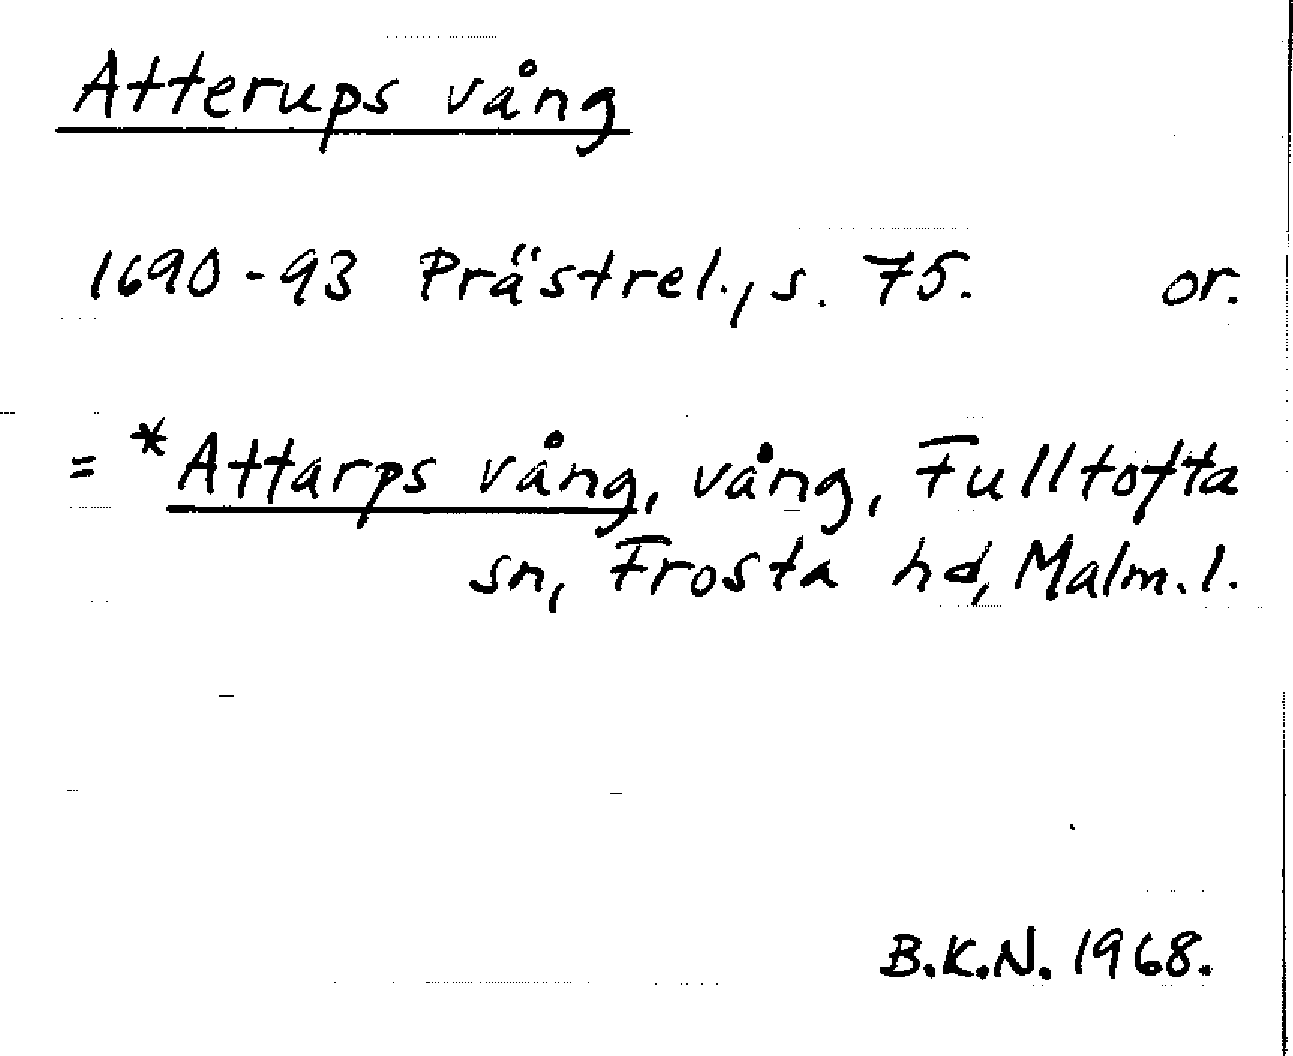 Atterups vång
1690-93 Prästrel., s. 75. or.
= *Attarps vång, vång, Fulltofta
sn, Frosta hd, Malm. l.
B.K.N. 1968.